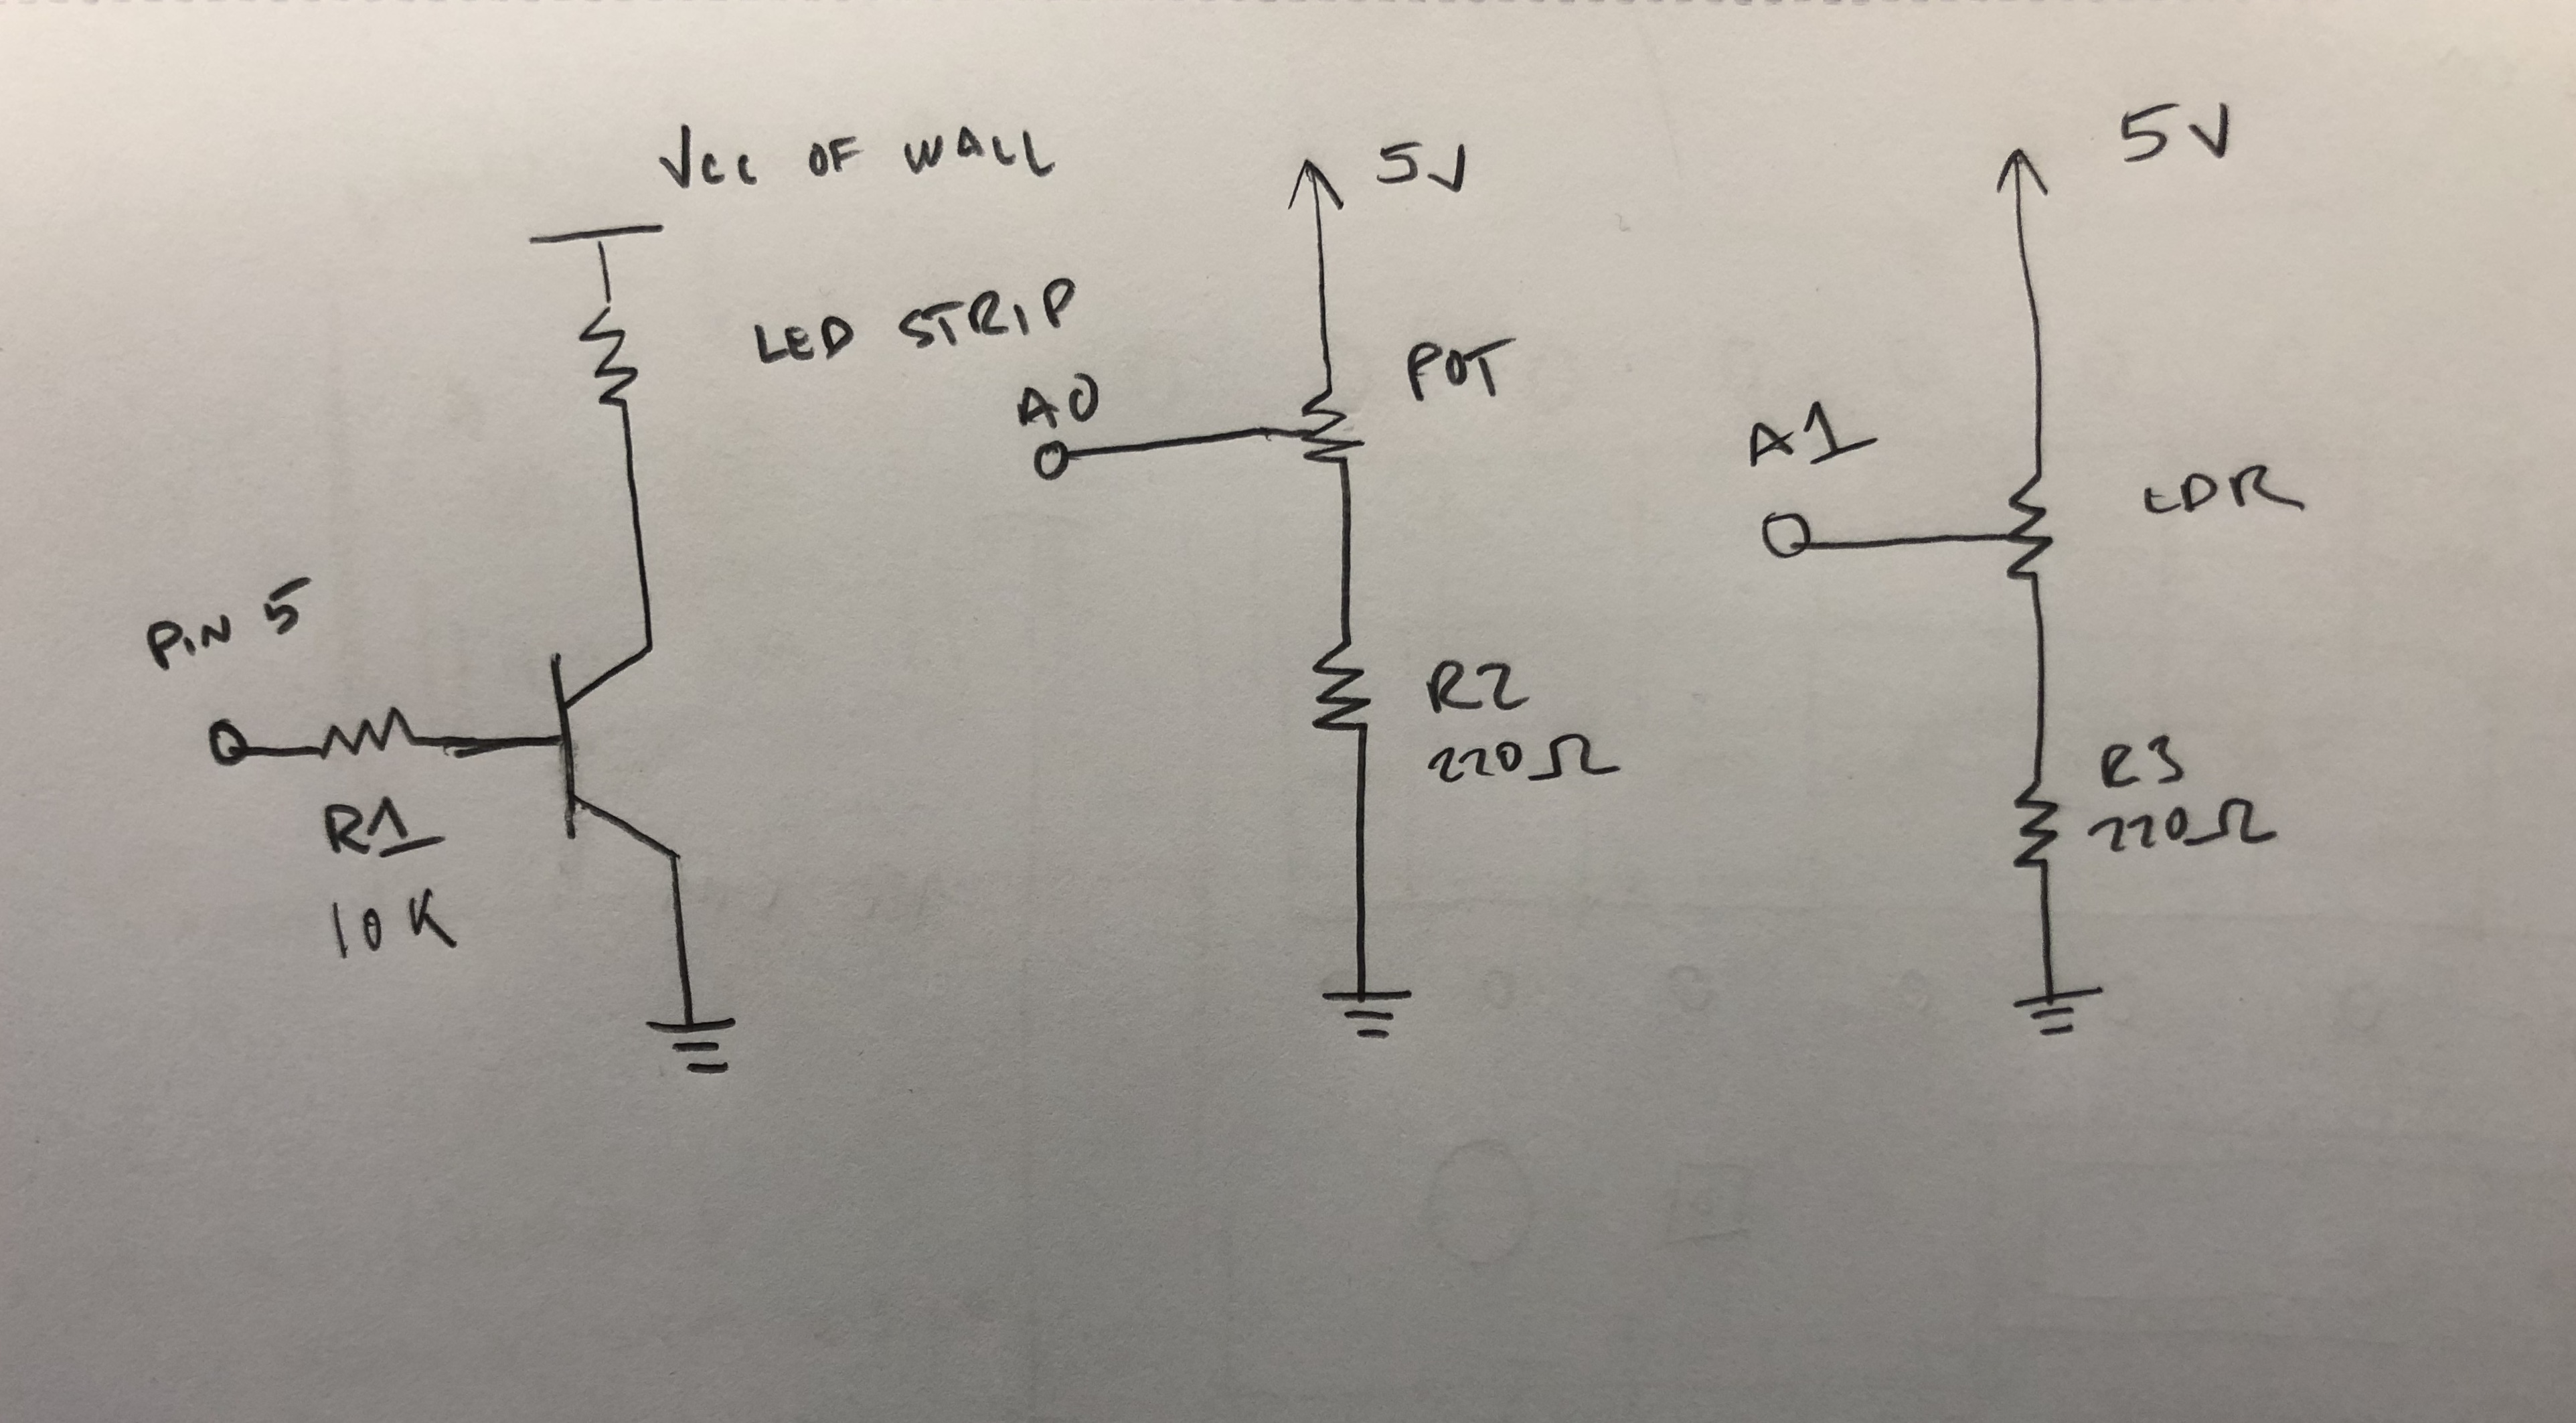 Vcc OF WALL
LED STRIP
PIN 5
R1
10K
5V
A0
POT
R2
220Ω
5V
A1
LDR
R3
220Ω